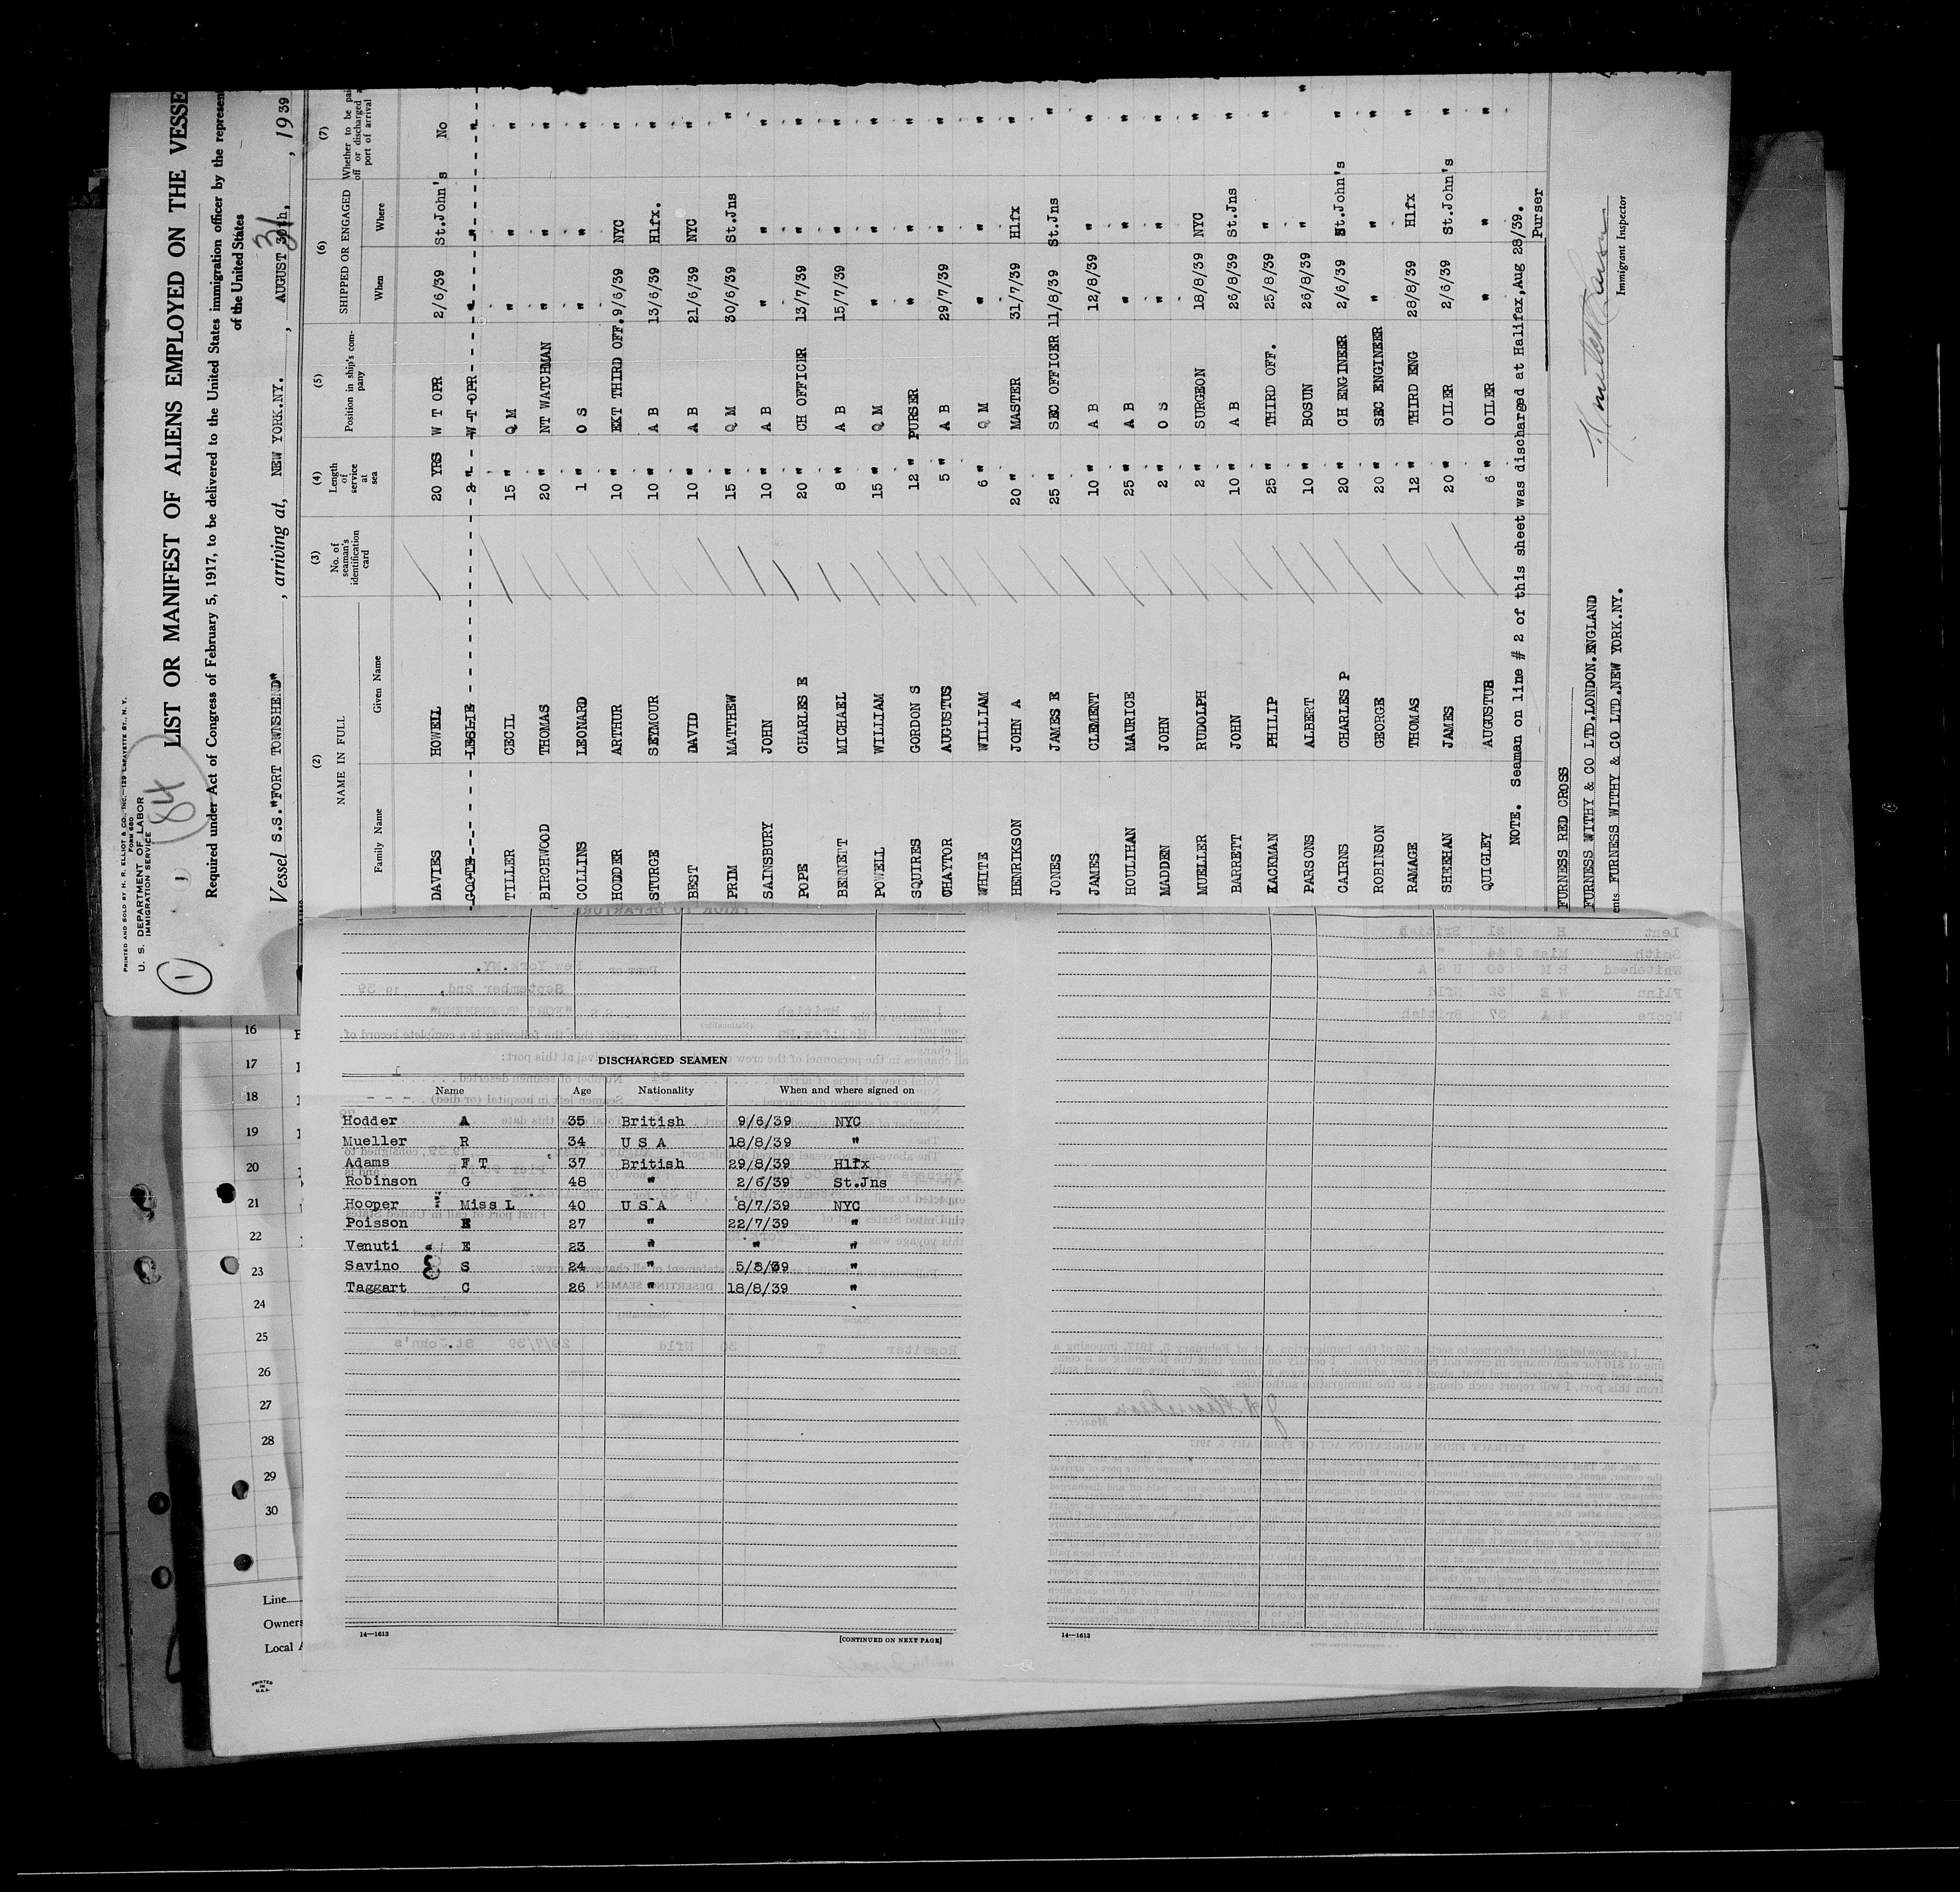 PRINTED AND SOLD BY H. R. ELLIOT & CO., INC.—129 LAFAYETTE ST., N. Y.
FORM 680
U. S. DEPARTMENT OF LABOR
IMMIGRATION SERVICE
84
1
1
LIST OR MANIFEST OF ALIENS EMPLOYED ON THE VESSE
Required under Act of Congress of February 5, 1917, to be delivered to the United States immigration officer by the represen
of the United States
Vessel S.S."FORT TOWNSHEND" , arriving at, NEW YORK.NY. , AUGUST 30th, 31 , 1939
(2) (3) (4) (5) (6) (7)
NAME IN FULL No. of seaman's identification card Length of service at sea Position in ship's company SHIPPED OR ENGAGED Whether to be pai off or discharged a port of arrival
Family Name Given Name When Where
DAVIES HOWELL 20 YRS W T OPR 2/6/39 St.John's No
LESLIE 2 " W T OPR " " "
TILLER CECIL 15 " Q M " " "
BIRCHWOOD THOMAS 20 " NT WATCHMAN " " "
COLLINS LEONARD 1 " O S " " "
HODDER ARTHUR 10 " EXT THIRD OFF. 9/6/39 NYC "
STURGE SEYMOUR 10 " A B 13/6/39 Hlfx. "
BEST DAVID 10 " A B 21/6/39 NYC "
PRIM MATTHEW 15 " Q M 30/6/39 St.Jns "
SAINSBURY JOHN 10 " A B " " "
POPE CHARLES E 20 " CH OFFICER 13/7/39 " "
BENNETT MICHAEL 8 " A B 15/7/39 " "
POWELL WILLIAM 15 " Q M " " "
SQUIRES GORDON S 12 " PURSER " " "
CHAYTOR AUGUSTUS 5 " A B 29/7/39 " "
WHITE WILLIAM 6 " Q M " " "
HENRIKSON JOHN A 20 " MASTER 31/7/39 Hlfx "
JONES JAMES E 25 " SEC OFFICER 11/8/39 St.Jns "
JAMES CLEMENT 10 " A B 12/8/39 " "
HOULIHAN MAURICE 25 " A B " " "
MADDEN JOHN 2 " O S " " "
MUELLER RUDOLPH 2 " SURGEON 18/8/39 NYC "
BARRETT JOHN 10 " A B 26/8/39 St.Jns "
KACKMAN PHILIP 25 " THIRD OFF. 25/8/39 " "
PARSONS ALBERT 10 " BOSUN 26/8/39 " "
CAIRNS CHARLES P 20 " CH ENGINEER 2/6/39 St.John's "
ROBINSON GEORGE 20 " SEC ENGINEER " " "
RAMAGE THOMAS 12 " THIRD ENG 28/8/39 Hlfx "
SHEEHAN JAMES 20 " OILER 2/6/39 St.John's "
QUIGLEY AUGUSTUS 6 " OILER " " "
NOTE. Seaman on line # 2 of this sheet was discharged at Halifax,Aug 28/39.
Purser
FURNESS RED CROSS
FURNESS WITHY & CO LTD.LONDON.ENGLAND
ents FURNESS WITHY & CO LTD.NEW YORK.NY.
Immigrant Inspector
16
17
18
19
20
21
22
23
24
25
26
27
28
29
30
Line
Owners
Local A
PRINTED IN U.S.A.
DISCHARGED SEAMEN
Name Age Nationality When and where signed on
Hodder A 35 British 9/6/39 NYC
Mueller R 34 U S A 18/8/39 "
Adams F T 37 British 29/8/39 Hlfx
Robinson G 48 " 2/6/39 St.Jns
Hooper Miss L 40 U S A 8/7/39 NYC
Poisson E 27 " 22/7/39 "
Venuti E 23 " " "
Savino S 24 " 5/8/39 "
Taggart C 26 " 18/8/39 "
14—1613 [CONTINUED ON NEXT PAGE]
14—1613